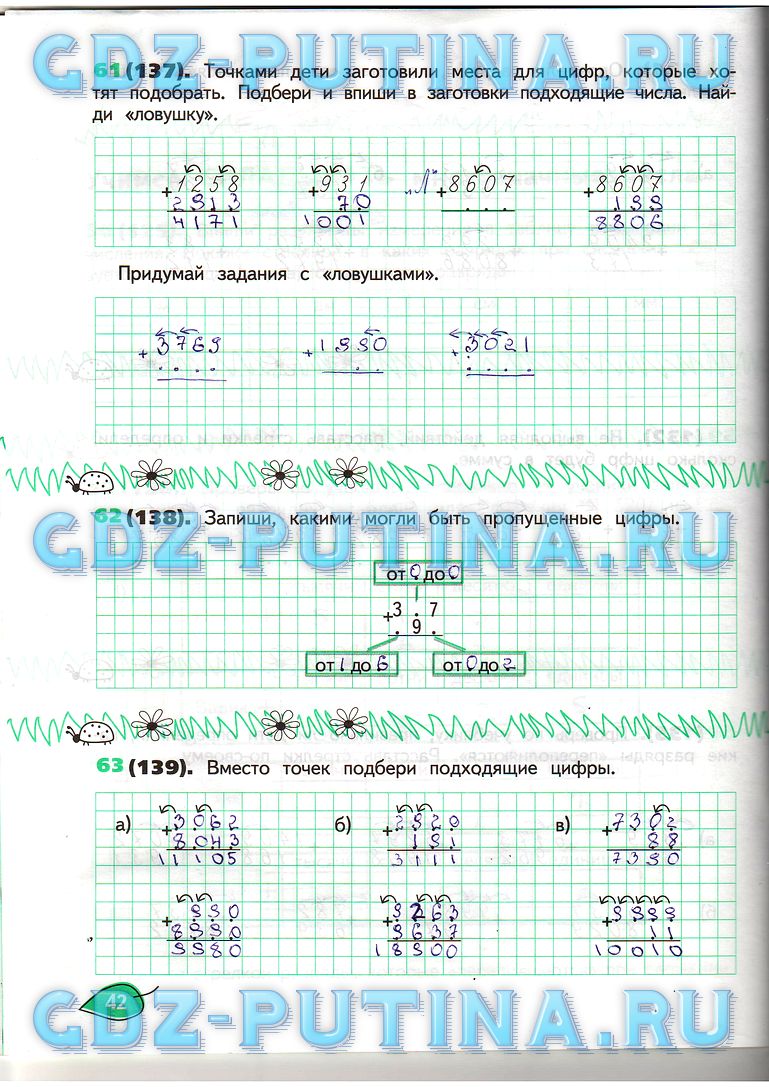 GDZ-PUTINA.RU
61 (137). Точками дети заготовили места для цифр, которые хо-
тят подобрать. Подбери и впиши в заготовки подходящие числа. Най-
ди «ловушку».
+1258 +931 „Л" +8607 +8607
2913 70 . . . 199
4171 1001 8806
Придумай задания с «ловушками».
+3769 +1990 +3021
. . . . . . . . . .
GDZ-PUTINA.RU
62 (138). Запиши, какими могли быть пропущенные цифры.
от 0 до 0
+3 . 7
. 9 .
от 1 до 6 от 0 до 2
63 (139). Вместо точек подбери подходящие цифры.
а) +3062 б) +2920 в) +7302
8043 191 88
11105 3111 7390
+990 +9263 +9999
8990 9637 11
9980 18900 10010
42
GDZ-PUTINA.RU